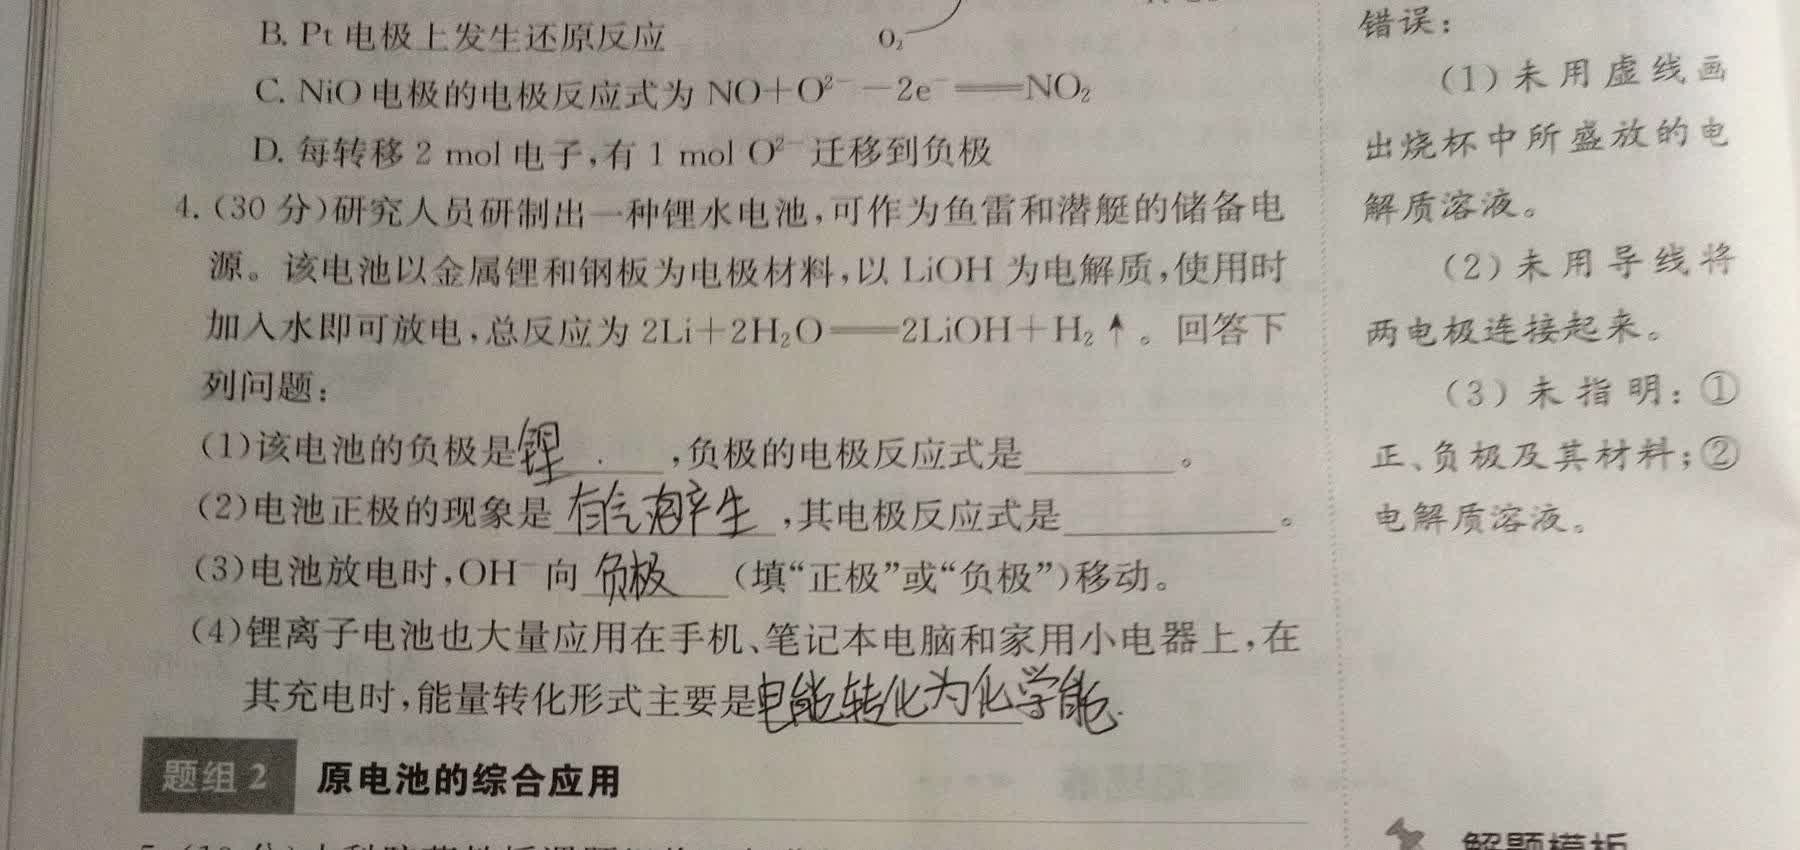 B. Pt 电极上发生还原反应
O₂
C. NiO 电极的电极反应式为 NO+O²⁻-2e⁻══NO₂
D. 每转移 2 mol 电子,有 1 mol O²⁻ 迁移到负极
4. (30 分)研究人员研制出一种锂水电池,可作为鱼雷和潜艇的储备电
源。该电池以金属锂和钢板为电极材料,以 LiOH 为电解质,使用时
加入水即可放电,总反应为 2Li+2H₂O══2LiOH+H₂↑。回答下
列问题:
(1)该电池的负极是锂,负极的电极反应式是________。
(2)电池正极的现象是有气泡产生,其电极反应式是________。
(3)电池放电时,OH⁻ 向负极(填“正极”或“负极”)移动。
(4)锂离子电池也大量应用在手机、笔记本电脑和家用小电器上,在
其充电时,能量转化形式主要是电能转化为化学能.
题组 2 原电池的综合应用
错误:
(1)未用虚线画
出烧杯中所盛放的电
解质溶液。
(2)未用导线将
两电极连接起来。
(3)未指明:①
正、负极及其材料;②
电解质溶液。
解题模板